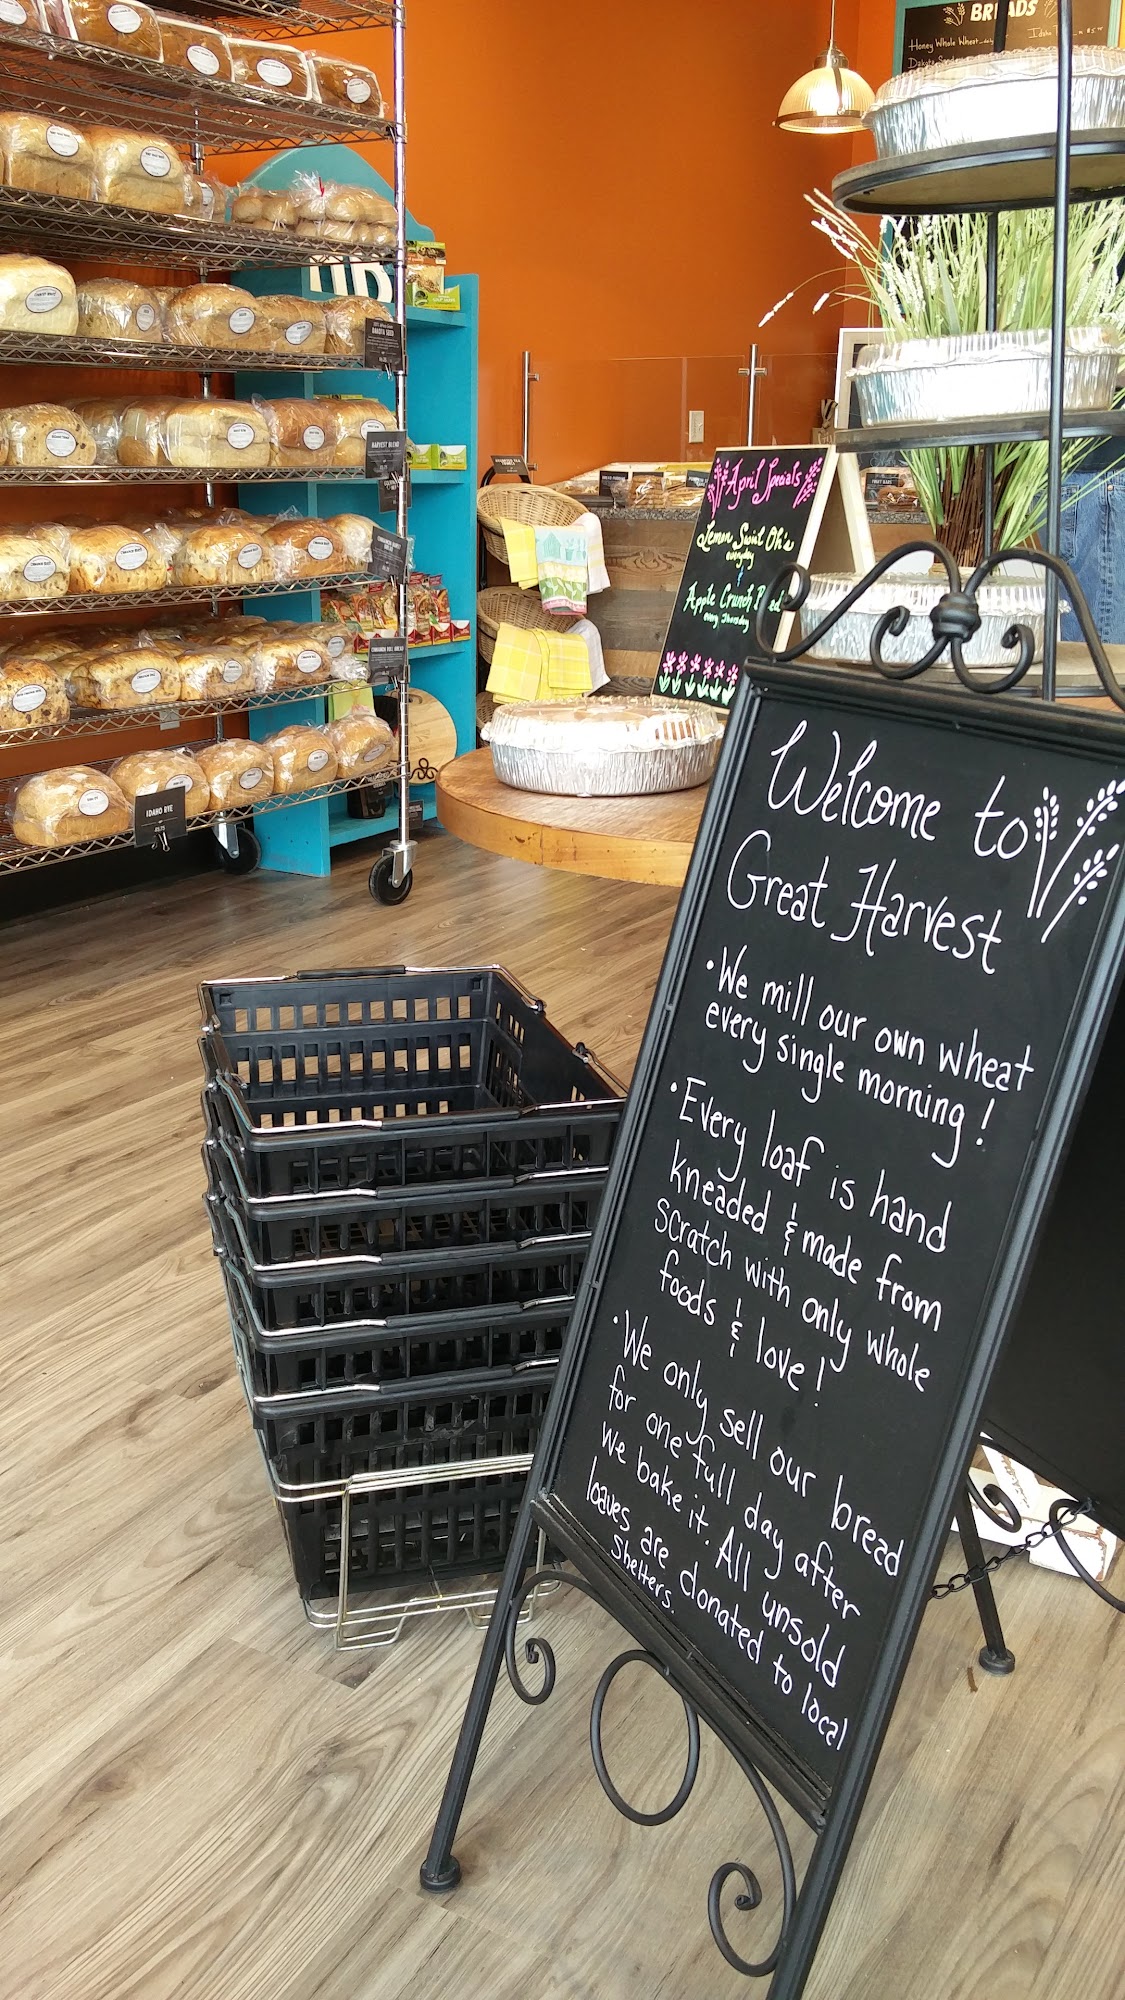 BREADS
Honey Whole Wheat
DAKOTA SEED
HARVEST BLEND
CINNAMON ROLL BREAD
IDAHO RYE
April Specials
Lemon Swirl Oh's
everyday
Apple Crunch
every Thursday
Welcome to
Great Harvest
• We mill our own wheat
every single morning!
• Every loaf is hand
kneaded & made from
scratch with only whole
foods & love!
• We only sell our bread
for one full day after
we bake it. All unsold
loaves are donated to local
shelters.